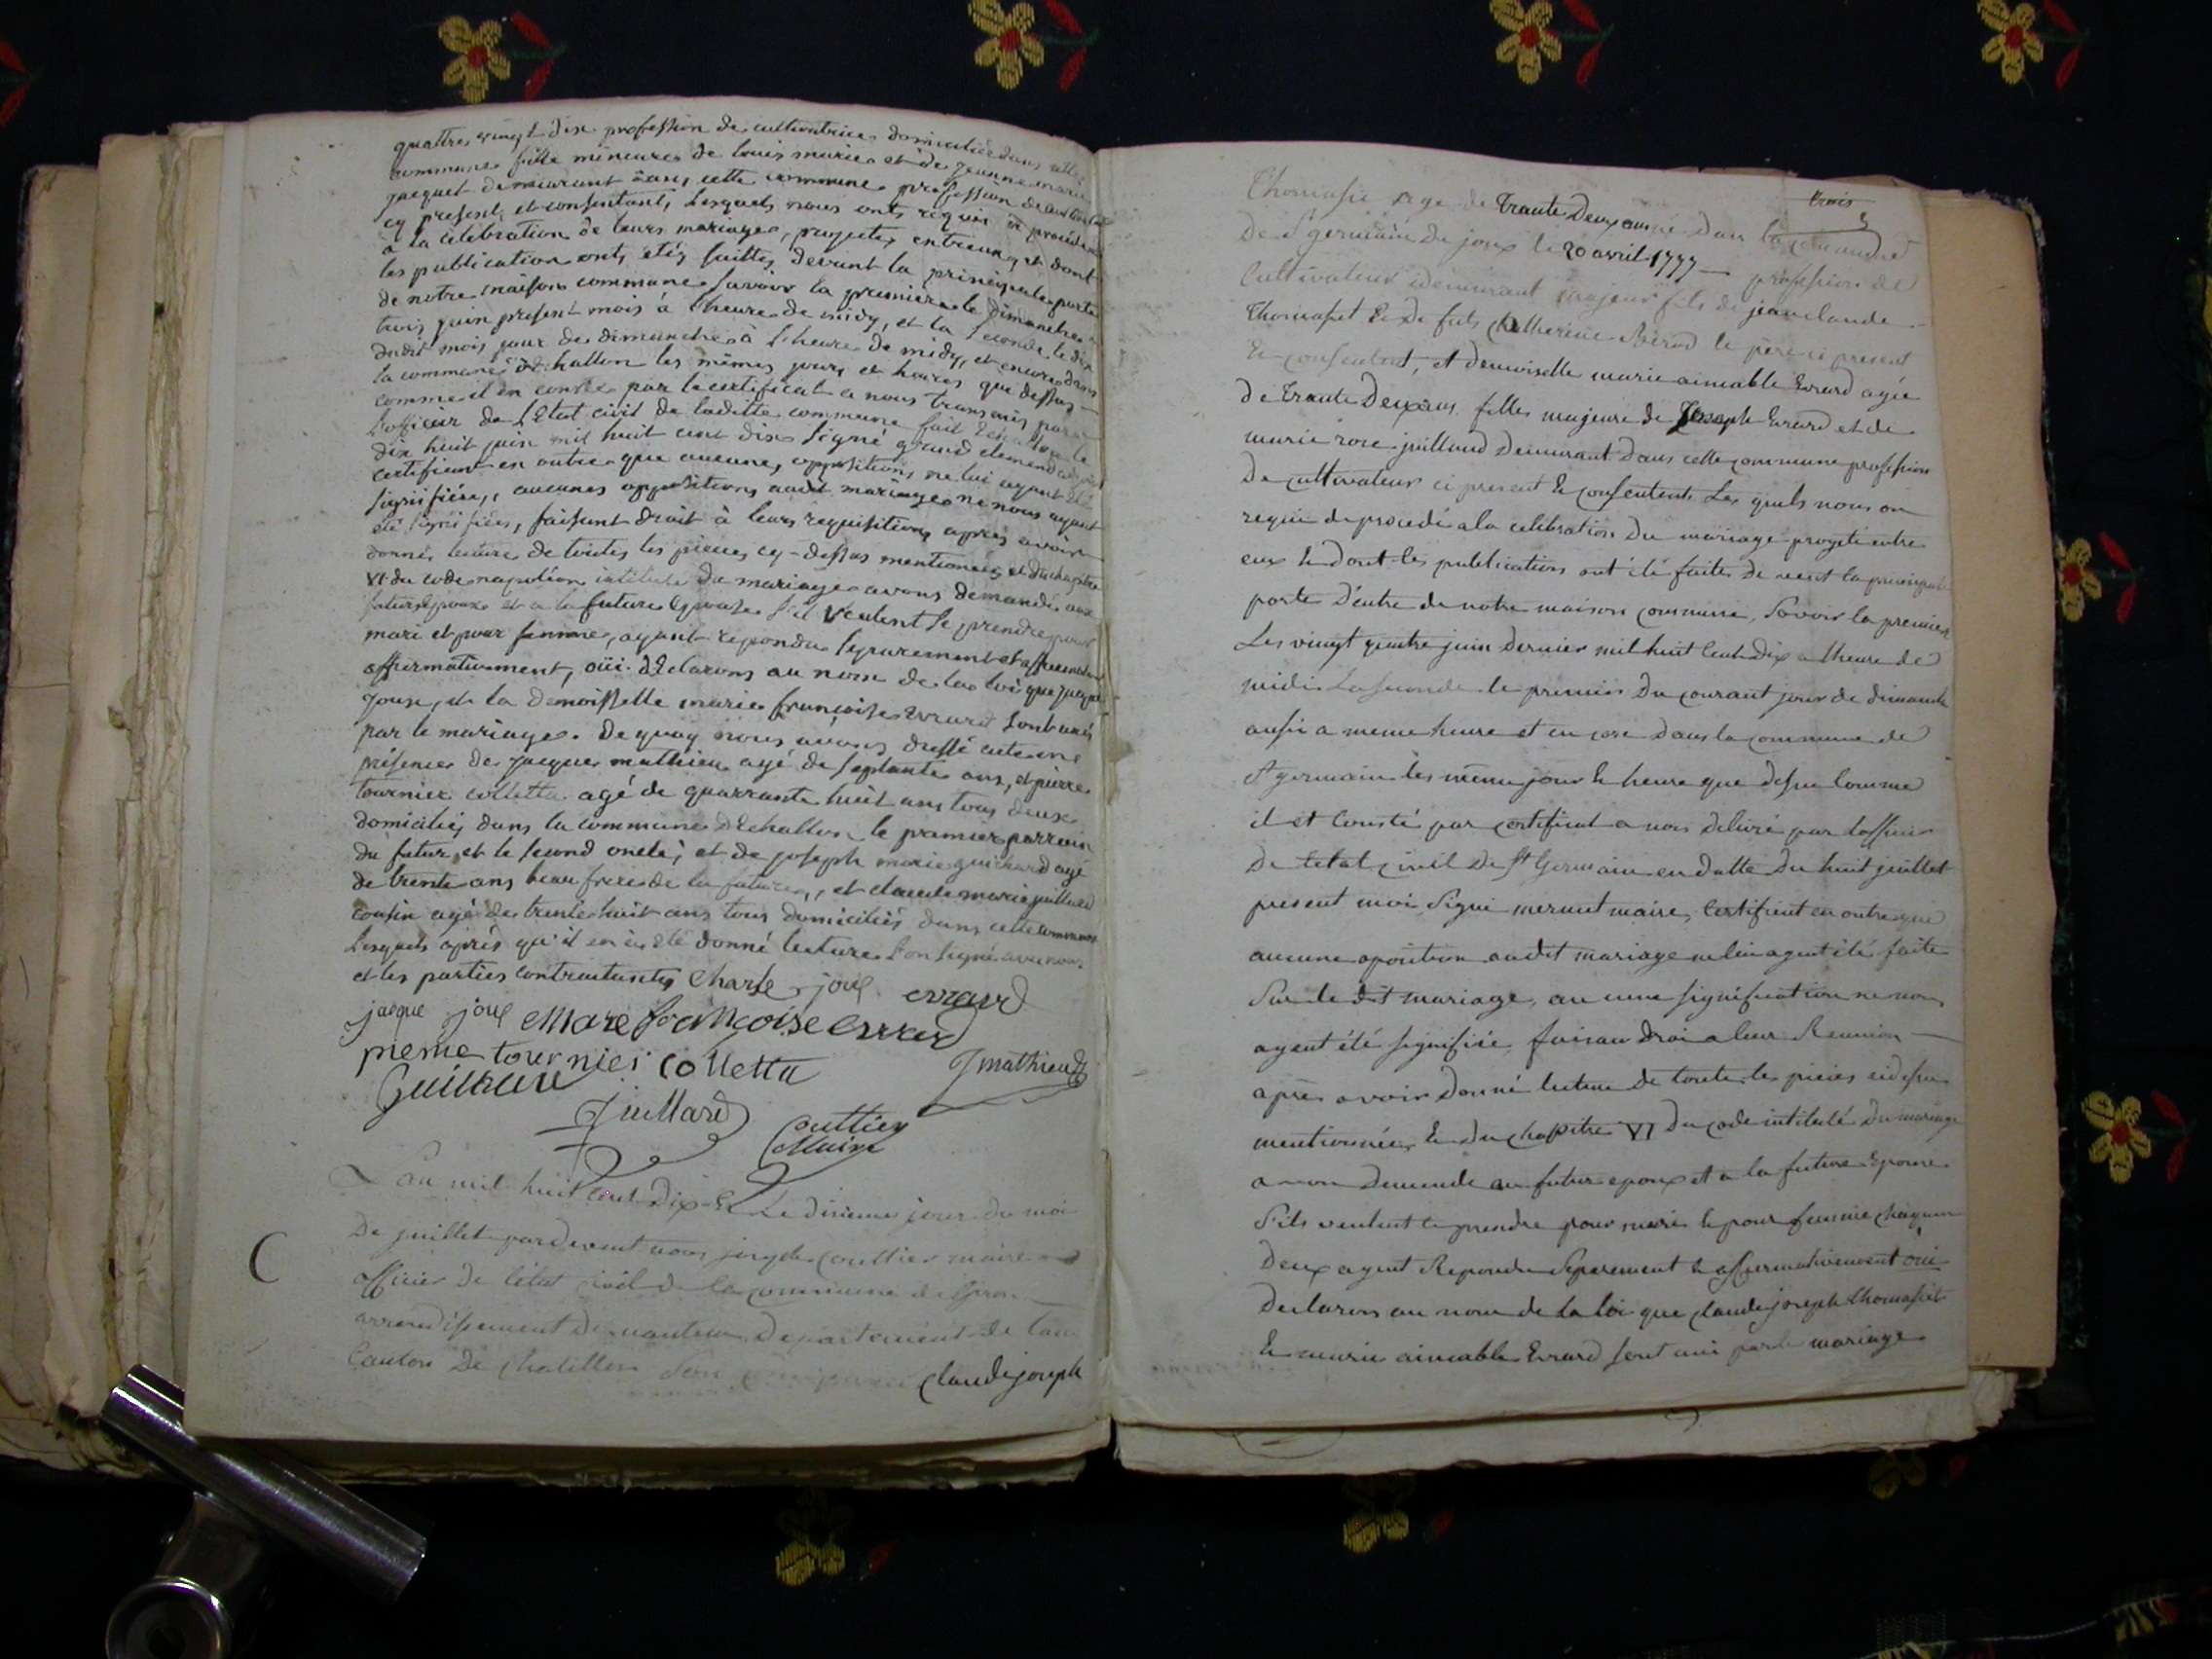 quattre vingt dix profession de cultivatrice domiciliée dans cette
commune fille mineure de louis marie et de jeanne marie
jacquet demeurant dans cette commune profession de
cy present, et consentant, Lesquels nous onts requis de procéder
a la celebration de leurs mariage, projettez entreeux, et dont
les publication onts etéz faittes devant la principale porte
de notre maison commune savoir la premiere le dimanche
trois juin present mois à l'heure de midy, et la seconde le dix
dudit mois jour de dimanche à l'heure de midy, et encore dans
la commune d'Echallon les mêmes jours et heures que dessus
comme il en conste par le certificat a nous transmis par
L'officier de l'Etat civil de laditte commune fait Echallon le
dix huit juin mil huit cent dix signé grand clement
certifient en outre que aucunes oppositions ne lui ayant été
signifiées, aucunes oppositions audit mariage ne nous ayant
été signifiées, faisant droit à leurs requisitions après avoir
donné lecture de toutes les pieces cy-dessus mentionées et du chapitre
VI. du code napoléon intitulé du mariage avons demandé aux
futur Epoux et a la future Epouse s'il veulent se prendre pour
mari et pour femme, ayant repondu separement et
affirmativement, oüi. DEclarons au nom de la loi que jacque
joux, et la demoisselle marie françoise Evrard sont unis
par le mariage. De quoy nous avons dressé acte en
présence de jacque mathieu agé de septante ans, et pierre
tournier colletta agé de quarrante huit ans tous deux
domiciliés dans la commune d'Echallon le premier parrain
du futur et le second oncle; et de joseph marie guichard agé
de trente ans beau frere de la future, et claude marie juilland
cousin agé de trente huit ans tous domiciliés dans cette commune
Lesquels après qu'il en a été donné lecture l'on signé avec nous
et les parties contractantes Charle joux evrard
jacque joux Marie francoise evrard
pierre tournier colletta J mathieu
Juillard
Couttier
Maire
L'an mil huit cent Dix Et Le dixieme jour du moi
De juillet pardevent nous joseph Couttier maire
officier de l'état civil de la commune de
arrondissement de nantua Departement de l'ain
Canton De Chatillon claude joseph
trois
Thomasset age de trante Deux ans né dans la commune
De St germain de joux le 20 avril 1777 — profession de
Cultivateur demeurant majeur fils de jean claude
Thomasset Et De fut Catherine le père ci present
Et consentent, et demoiselle marie aimable Evrard agée
de trante Deux ans. fille majeure de Joseph Evrard et de
marie rose juilland demeurant Dans cette commune profession
De cultivateur ci present & consentent Les quels nous on
requis de procedé a la celebration Du mariage projeté entre
eux & dont les publications ont été faites de vent la principale
porte D'entre de notre maison commune, Savoir la premier
Les vingt quatre juin Dernier mil huit Cent dix a lheure de
midi La seconde le premier Du courant jour de dimanche
aussi a meme heure et en core Dans la commune de
St germain les même jour & heure que desus Comme
il et Consté par certificat a nous Delivré par Lofficier
De letat civil De St Germain en datte Du huit juillet
present moi Signé mermet maire, Certifient en outre que
aucune oposition audit mariage ne lui ayent été faite
Sur le dit mariage, aucune signification ne nous
ayent été signifiée, faisan droi a leur Reunion —
après avoir Donné lecture de toute les pieces ci desus
mentionnée, & Du chapitre VI Du code intitulé Du mariage
avon Demande au futur epoux et a la future Epouse
S'ils veulent ce prendre pour mari & pour femme chaqun
Deux ayent Repondu Separement & affirmativement oui
Declarons au nom de la loi que claude joseph thomasset
Et marie aimable Evrard sont uni par le mariage